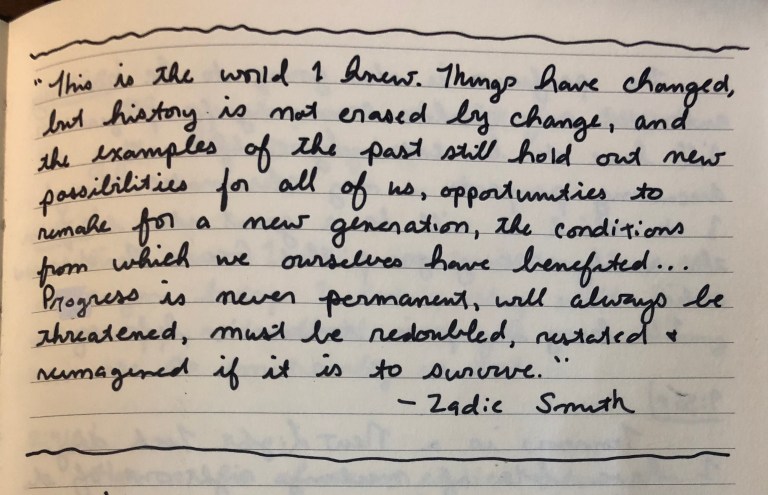 "This is the world I knew. Things have changed,
but history is not erased by change, and
the examples of the past still hold out new
possibilities for all of us, opportunities to
remake for a new generation, the conditions
from which we ourselves have benefited...
Progress is never permanent, will always be
threatened, must be redoubled, restated &
reimagined if it is to survive."
- Zadie Smith